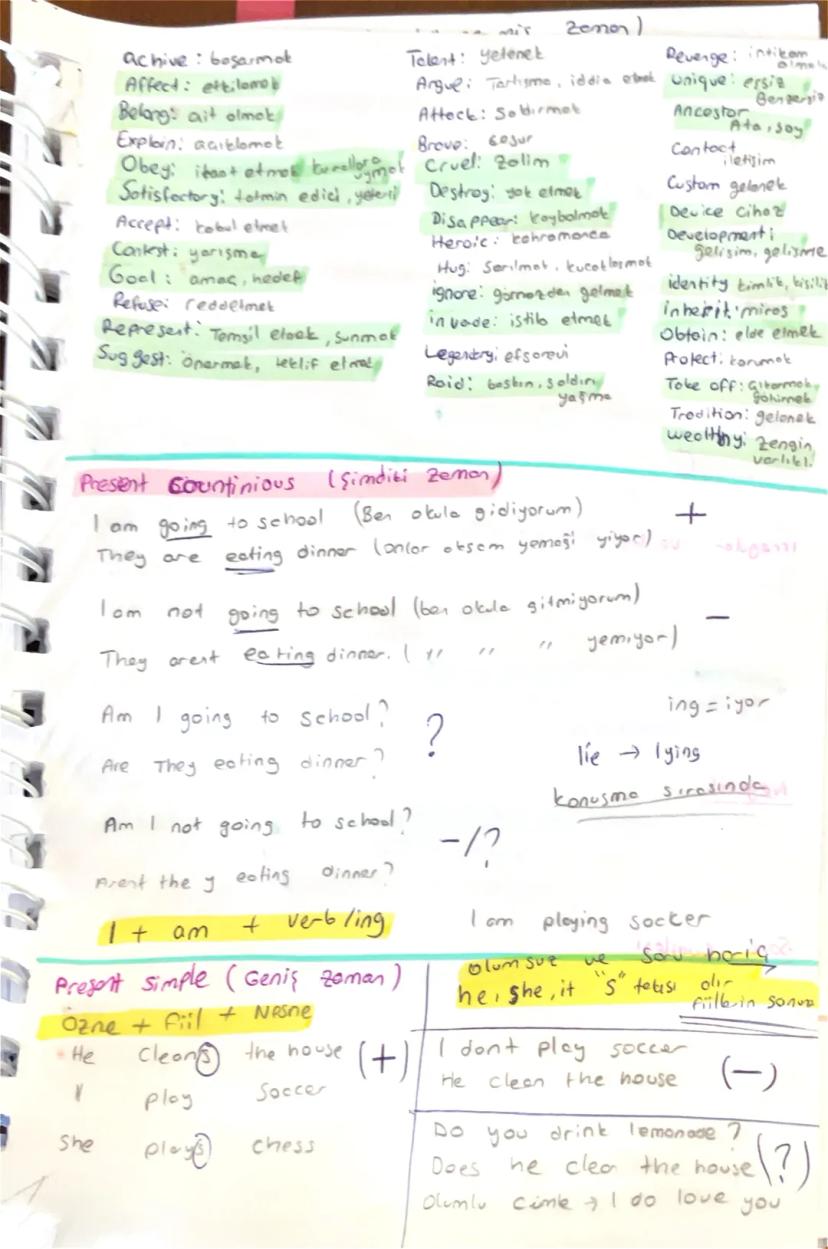 zaman)
Achive : başarmak
Affect : etkilemek
Belong: ait olmak
Explain: açıklamak
Obey: itaat etmek kurallara uymak
Satisfactory: tatmin edici, yeterli
Accept: kabul etmek
Contest: yarışma
Goal : amaç, hedef
Refuse: reddetmek
Represent: Temsil etmek, sunmak
Suggest: önermek, teklif etmek
Talent: yetenek
Argue: Tartışma, iddia etmek
Attack: Saldırmak
Brave: cesur
Cruel: Zalim
Destroy: yok etmek
Disappear: kaybolmak
Heroic: kahramanca
Hug: Sarılmak, kucaklaşmak
ignore: görmezden gelmek
invade: istila etmek
Legendry: efsanevi
Raid: baskın, saldırı
yağma
Revenge: intikam
almak
Unique: eşsiz
Benzersiz
Ancestor
Ata, soy
Contact
iletişim
Custom gelenek
Device Cihaz
Development:
gelişim, gelişme
identity kimlik, kişilik
inherit: miras
Obtain: elde etmek
Protect: korumak
Take off: Çıkarmak,
götürmek
Tradition: gelenek
wealthy: zengin,
varlıklı
Present countinious (Şimdiki zaman)
I am going to school (Ben okula gidiyorum) +
They are eating dinner (onlar akşam yemeği yiyor)
I am not going to school (ben okula gitmiyorum) −
They arent eating dinner. ( " " " yemiyor)
Am I going to school?
Are They eating dinner?
?
ing = iyor
lie → lying
konuşma sırasında
Am I not going to school?
Arent the y eating dinner?
-/?
I + am + verb/ing
I am playing socker
Present simple (Geniş zaman)
Özne + fiil + Nesne
He cleans the house (+)
I play Soccer
She plays chess
olumsuz ve soru hariç
he, she, it "S" takısı alır
fiillerin sonuna
I dont play soccer
He clean the house (−)
Do you drink lemonade ?
Does he clean the house (?)
Olumlu cümle → I do love you